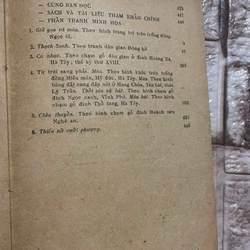 — CÙNG BẠN ĐỌC
— SÁCH VÀ TÀI LIỆU THAM KHẢO CHÍNH
— PHẦN TRANH MINH HỌA:
1. Giã gạo và múa. Theo hình trang trí trên trống đồng
Ngọc lũ.
2. Thạch Sanh. Theo tranh dân gian Đông hồ
3. Ca nhạc. Theo chạm gỗ dân gian ở đình Hoàng Xá,
Hà Tây, thế kỷ thứ XVIII.
4. Từ trái sang phải. Múa. Theo hình khắc trên trống
đồng Miếu môn, Mỹ đức, Hà Tây. Múa và nhạc.
Theo hình chạm đá nổi ở Hang Chùa, Yên bái, thời
Lý Trần.
đình Ngọc canh, Vĩnh Phú. Múa hát. Theo hình
chạm gỗ đình Thổ tang, Hà Tây.
5. Chèo thuyền. Theo hình chạm gỗ đình Hoành sơn
Nghệ an.
6. Thiếu nữ cưỡi phượng.